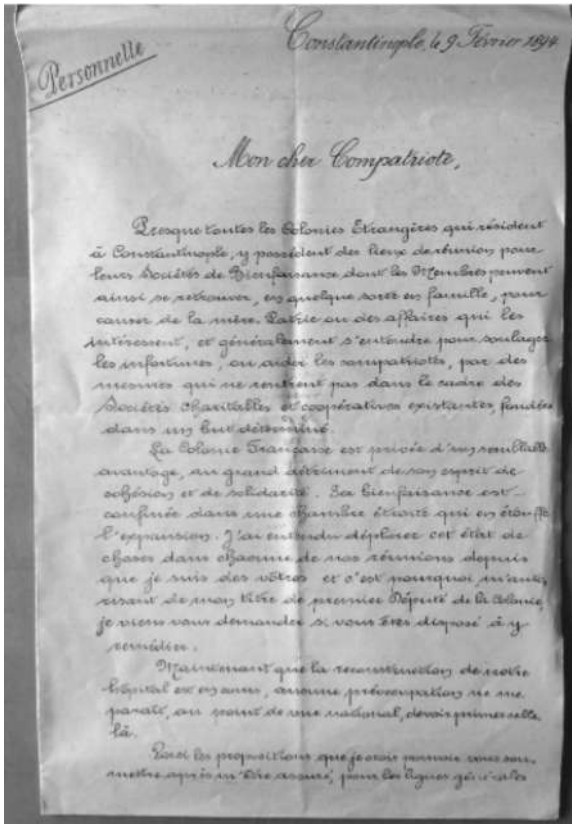 Personnelle
Constantinople, le 9 Février 1894
Mon cher Compatriote,
Presque toutes les Colonies Etrangères qui résident
à Constantinople, y possèdent des lieux de réunion pour
leurs Sociétés de Bienfaisance dont les Membres peuvent
ainsi se retrouver, en quelque sorte en famille, pour
causer de la mère-Patrie ou des affaires qui les
intéressent, et généralement s'entendre pour soulager
les infortunes, ou aider les compatriotes, par des
mesures qui ne rentrent pas dans le cadre des
Sociétés charitables et coopératives existantes, fondées
dans un but déterminé.
La Colonie Française est privée d'un semblable
avantage, au grand détriment de son esprit de
cohésion et de solidarité. Sa bienfaisance est
confinée dans une chambre étroite qui en étouffe
l'expansion. J'ai entendu déplorer cet état de
choses dans chacune de nos réunions depuis
que je suis des vôtres et c'est pourquoi m'auto-
risant de mon titre de premier Député de la Colonie,
je viens vous demander si vous êtes disposé à y
remédier.
Maintenant que la reconstruction de notre
hôpital est en cours, aucune préoccupation ne me
paraît, au point de vue national, devoir primer celle-
là.
Voici les propositions que je crois pouvoir vous sou-
mettre après m'être assuré, pour les lignes générales